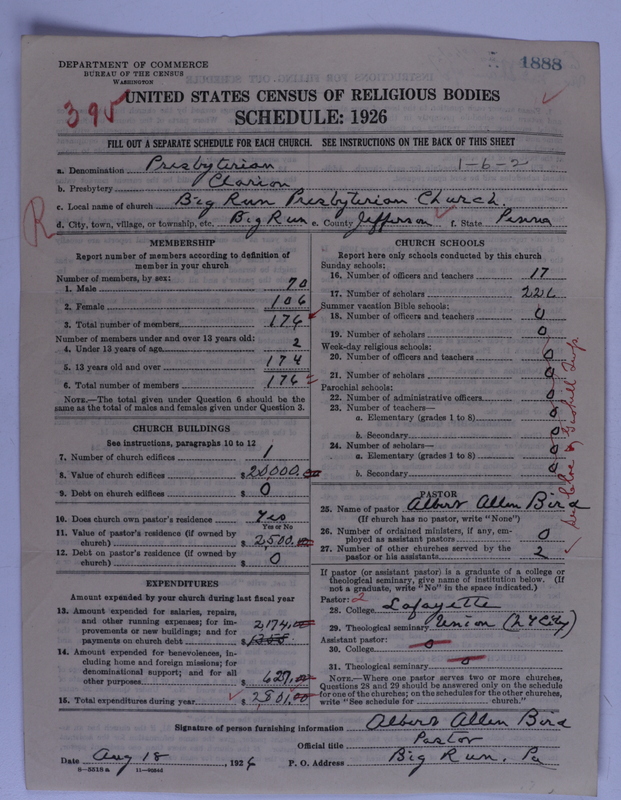 DEPARTMENT OF COMMERCE
BUREAU OF THE CENSUS
WASHINGTON
1888
395
UNITED STATES CENSUS OF RELIGIOUS BODIES
SCHEDULE: 1926
FILL OUT A SEPARATE SCHEDULE FOR EACH CHURCH. SEE INSTRUCTIONS ON THE BACK OF THIS SHEET
a. Denomination Presbyterian 1-6-2
b. Presbytery Clarion
c. Local name of church Big Run Presbyterian Church.
R
d. City, town, village, or township, etc. Big Run e. County Jefferson f. State Penna
MEMBERSHIP
Report number of members according to definition of
member in your church
Number of members, by sex:
1. Male 70
2. Female 106
3. Total number of members 176
Number of members under and over 13 years old:
4. Under 13 years of age 2
5. 13 years old and over 174
6. Total number of members 176
NOTE.—The total given under Question 6 should be the
same as the total of males and females given under Question 3.
CHURCH BUILDINGS
See instructions, paragraphs 10 to 12
7. Number of church edifices 1
8. Value of church edifices $20,000.00
9. Debt on church edifices $ 0
10. Does church own pastor's residence Yes
Yes or No
11. Value of pastor's residence (if owned by
church) $ 2,500.00
12. Debt on pastor's residence (if owned by
church) $ 0
EXPENDITURES
Amount expended by your church during last fiscal year
13. Amount expended for salaries, repairs,
and other running expenses; for im-
provements or new buildings; and for
payments on church debt 2,174.00
14. Amount expended for benevolences, in-
cluding home and foreign missions; for
denominational support; and for all
other purposes $ 627.00
15. Total expenditures during year $ 2801.00
CHURCH SCHOOLS
Report here only schools conducted by this church
Sunday schools:
16. Number of officers and teachers 17
17. Number of scholars 226
Summer vacation Bible schools:
18. Number of officers and teachers 0
19. Number of scholars 0
Week-day religious schools:
20. Number of officers and teachers 0
21. Number of scholars 0
Parochial schools:
22. Number of administrative officers 0
23. Number of teachers—
a. Elementary (grades 1 to 8) 0
b. Secondary 0
24. Number of scholars—
a. Elementary (grades 1 to 8) 0
b. Secondary 0
PASTOR
25. Name of pastor Albert Allen Bird
(If church has no pastor, write "None")
26. Number of ordained ministers, if any, em-
ployed as assistant pastors 0
27. Number of other churches served by the
pastor or his assistants 2
If pastor (or assistant pastor) is a graduate of a college or
theological seminary, give name of institution below. (If
not a graduate, write "No" in the space indicated.)
Pastor: 2
28. College Lafayette
29. Theological seminary Union (N Y City)
Assistant pastor:
30. College 0
31. Theological seminary 0
NOTE.—Where one pastor serves two or more churches,
Questions 28 and 29 should be answered only on the schedule
for one of the churches; on the schedules for the other churches,
write "See schedule for church."
Signature of person furnishing information Albert Allen Bird
Official title Pastor
Date Aug 18, 1926 P. O. Address Big Run, Pa
8—5518a 11—8054